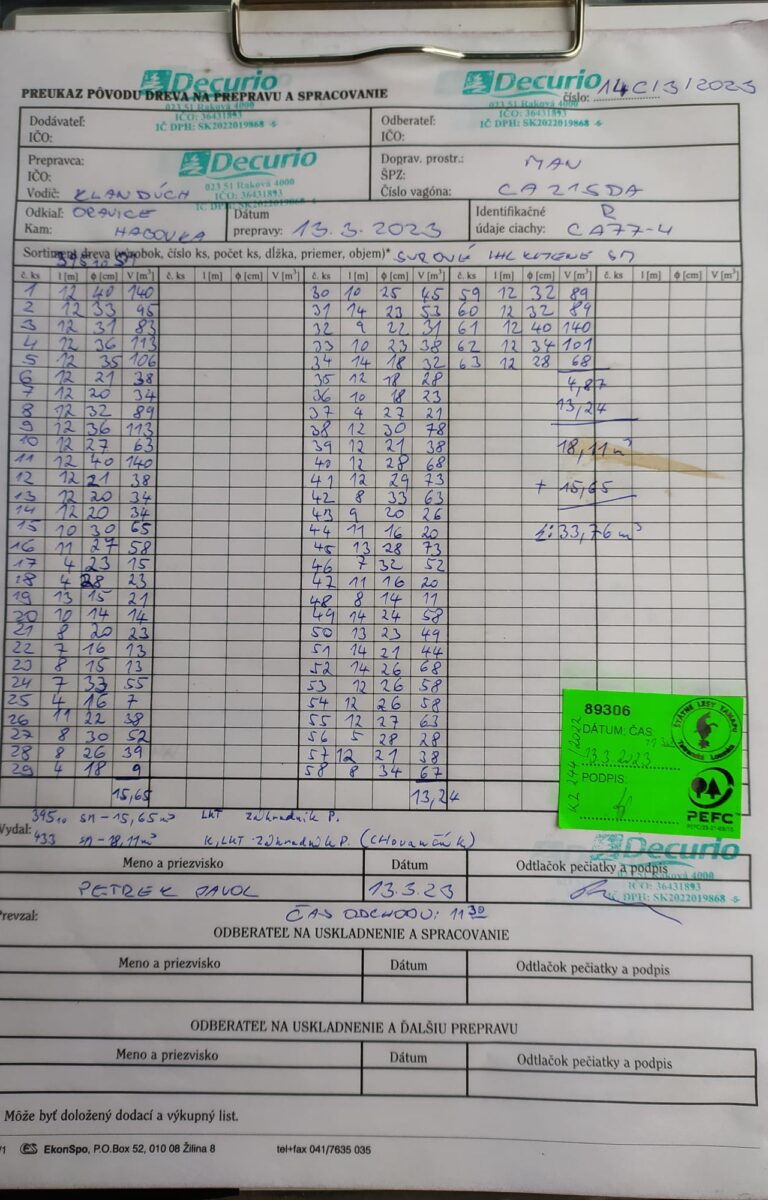 Decurio Decurio
PREUKAZ PÔVODU DREVA NA PREPRAVU A SPRACOVANIE číslo: 14C/3/2023
023 51 Raková 4000 023 51 Raková 4000
IČO: 36431893 IČO: 36431893
IČ DPH: SK2022019868 IČ DPH: SK2022019868
Dodávateľ: Odberateľ:
IČO: IČO:
Prepravca: Decurio Doprav. prostr.: MAN
IČO: 023 51 Raková 4000 ŠPZ:
Vodič: KLANDÚCH IČO: 36431893 Číslo vagóna: CA215DA
IČ DPH: SK2022019868
Odkiaľ: ORAVICE Dátum Identifikačné R
Kam: HAGOVKA prepravy: 13.3.2023 údaje ciachy: CA77-4
Sortiment dreva (výrobok, číslo ks, počet ks, dĺžka, priemer, objem)* SUROVÉ IHL KMENE SM
č. ks l [m] φ [cm] V [m³] č. ks l [m] φ [cm] V [m³] č. ks l [m] φ [cm] V [m³] č. ks l [m] φ [cm] V [m³] č. ks l [m] φ [cm] V [m³]
1 12 40 140 30 10 25 45 59 12 32 89
2 12 33 95 31 14 23 53 60 12 32 89
3 12 31 83 32 9 22 31 61 12 40 140
4 12 36 113 33 10 23 38 62 12 34 101
5 12 35 106 34 14 18 32 63 12 28 68
6 12 21 38 35 12 18 28 4,87
7 12 20 34 36 10 18 23 13,24
8 12 32 89 37 4 27 21
9 12 36 113 38 12 30 78 18,11 m³
10 12 27 63 39 12 21 38
11 12 40 140 40 12 28 68
12 12 21 38 41 12 29 73 + 15,65
13 12 20 34 42 8 33 63
14 12 20 34 43 9 20 26
15 10 30 65 44 11 16 20 Σ: 33,76 m³
16 11 27 58 45 13 28 73
17 4 23 15 46 7 32 52
18 4 28 23 47 11 16 20
19 13 15 21 48 8 14 11
20 10 14 14 49 14 24 58
21 8 20 23 50 13 23 49
22 7 16 13 51 14 21 44
23 8 15 13 52 14 26 68
24 7 33 55 53 12 26 58
25 4 16 7 54 12 26 58
26 11 22 38 55 12 27 63
27 8 30 52 56 5 28 28
28 8 26 39 57 12 21 38
29 4 18 9 58 8 34 67
15,65 13,24
89306
DÁTUM, ČAS
13.3.2023
PODPIS
ŠTÁTNE LESY TANAPU
Tatranská Lomnica
PEFC
395 10 SM - 15,65 m³ LKT Záhradník P.
Vydal: 433 SM - 18,11 m³ K, LKT Záhradník P. (CHovančák)
Decurio
Meno a priezvisko Dátum Odtlačok pečiatky a podpis
PETREK PAVOL 13.3.23 IČO: 36431893
IČ DPH: SK2022019868
Prevzal: ČAS ODCHODU: 11 30
ODBERATEĽ NA USKLADNENIE A SPRACOVANIE
Meno a priezvisko Dátum Odtlačok pečiatky a podpis
ODBERATEĽ NA USKLADNENIE A ĎALŠIU PREPRAVU
Meno a priezvisko Dátum Odtlačok pečiatky a podpis
Môže byť doložený dodací a výkupný list.
EkonSpo, P.O.Box 52, 010 08 Žilina 8 tel+fax 041/7635 035